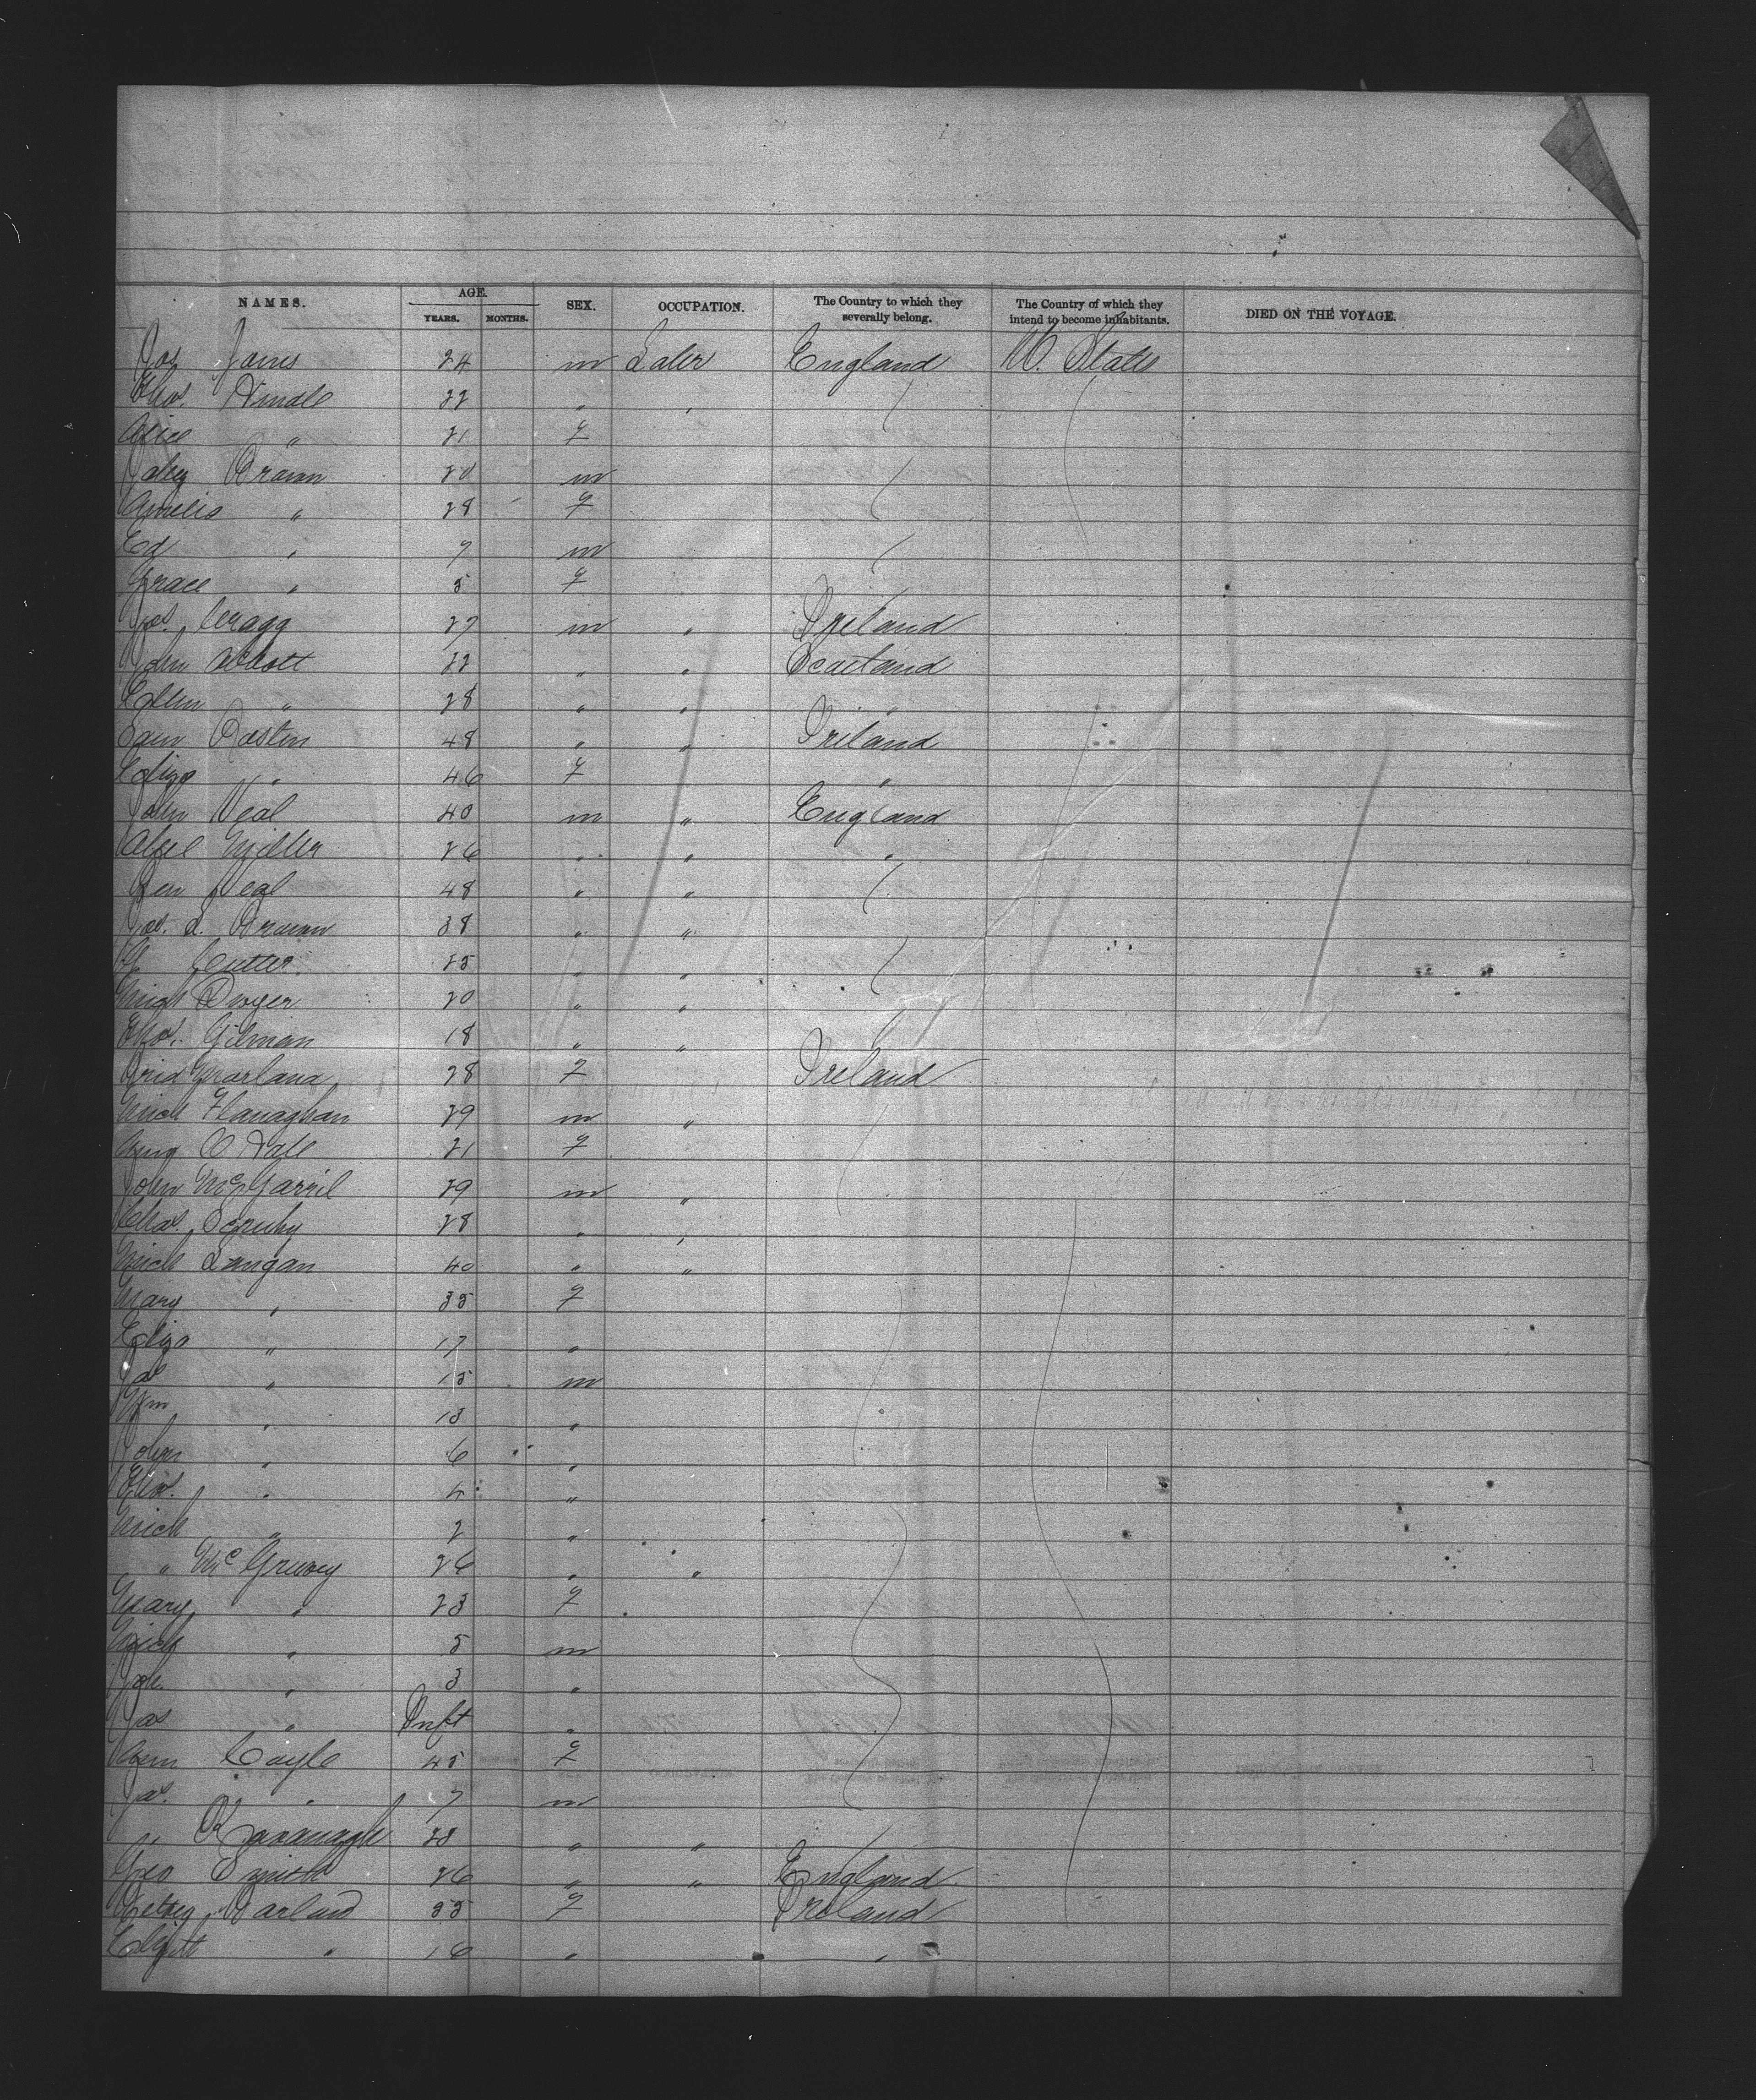 NAMES. AGE. SEX. OCCUPATION. The Country to which they severally belong. The Country of which they intend to become inhabitants. DIED ON THE VOYAGE.
YEARS. MONTHS.
Jos Jones 24 m Labr England U. States
Thos. Hindle 22 " "
Alice " 21 f
Brown 20 m
Amelia " 28 f
Ed " 7 m
Grace " 5 f
Jos. Cragg 27 m " Ireland
John Abbott 22 " " Scotland
Ellen " 28 " " "
Sam 48 " " Ireland
Eliza " 46 f "
John Neal 40 m " England
Abel Miller 26 " " "
Ben Neal 48 " "
Jas. L. Brown 38 " "
Cutter 25 " "
Mich Dwyer 20 " "
Thos. Gilman 18 " "
Brid 28 f Ireland
Mich Flanaghan 29 m "
21 f
John McGarril 29 m "
Chas. 28 " "
Mich Langan 40 " "
Mary " 35 f
Eliza " 17 "
Jas " 15 m
Wm " 13 "
John " 6 "
Thos. " 4 "
Mich " 2 "
" McGreevy 26 " "
Mary " 23 f
Mich " 5 m
Joh. " 3 "
Jas " Inft "
Ann Coyle 45 f
Jas. " 7 m
" Kavanagh 28 " "
Geo Smith 26 " " England
Betsey Garland 35 f Ireland
" 16 " "